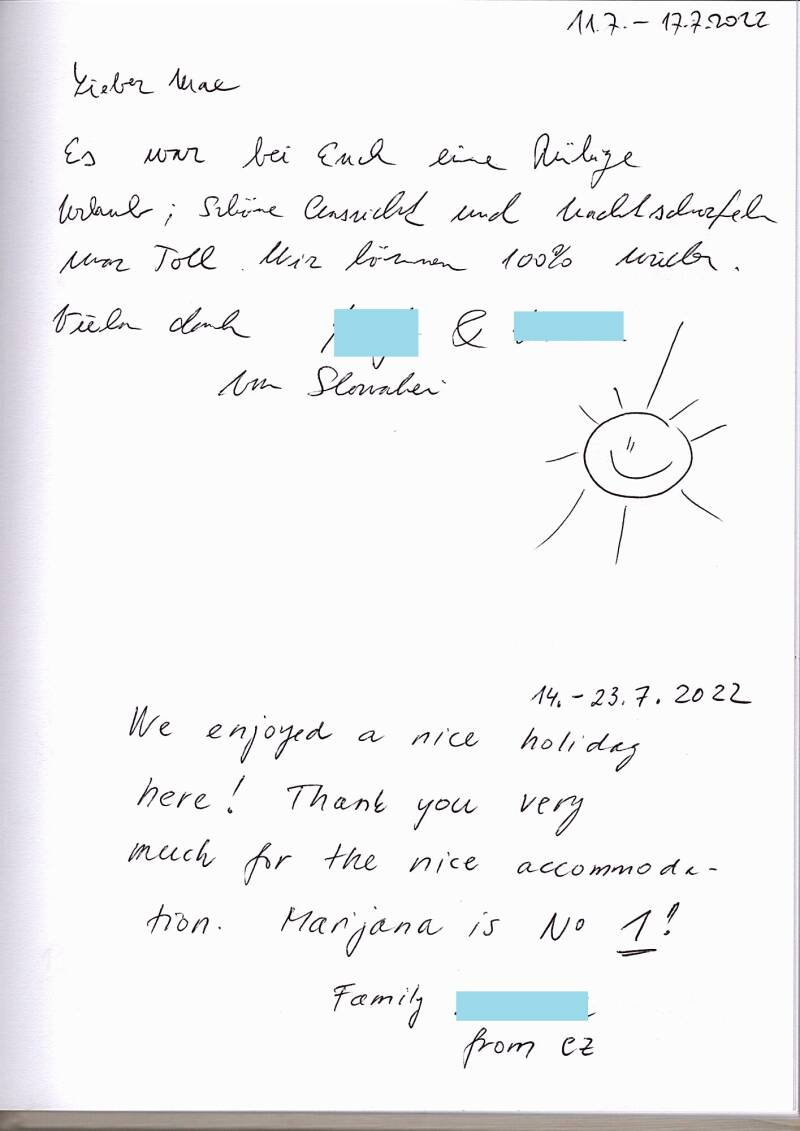 11.7. - 17.7.2022
Lieber Mae
Es war bei Euch eine Rühige
Urlaub; Schöne Aussicht und
war Toll. Wir können 100% wieder.
Vielen dank &
Von Slowakei
14. - 23.7.2022
We enjoyed a nice holiday
here! Thank you very
much for the nice accommoda-
tion. Marijana is No 1!
Family
from CZ